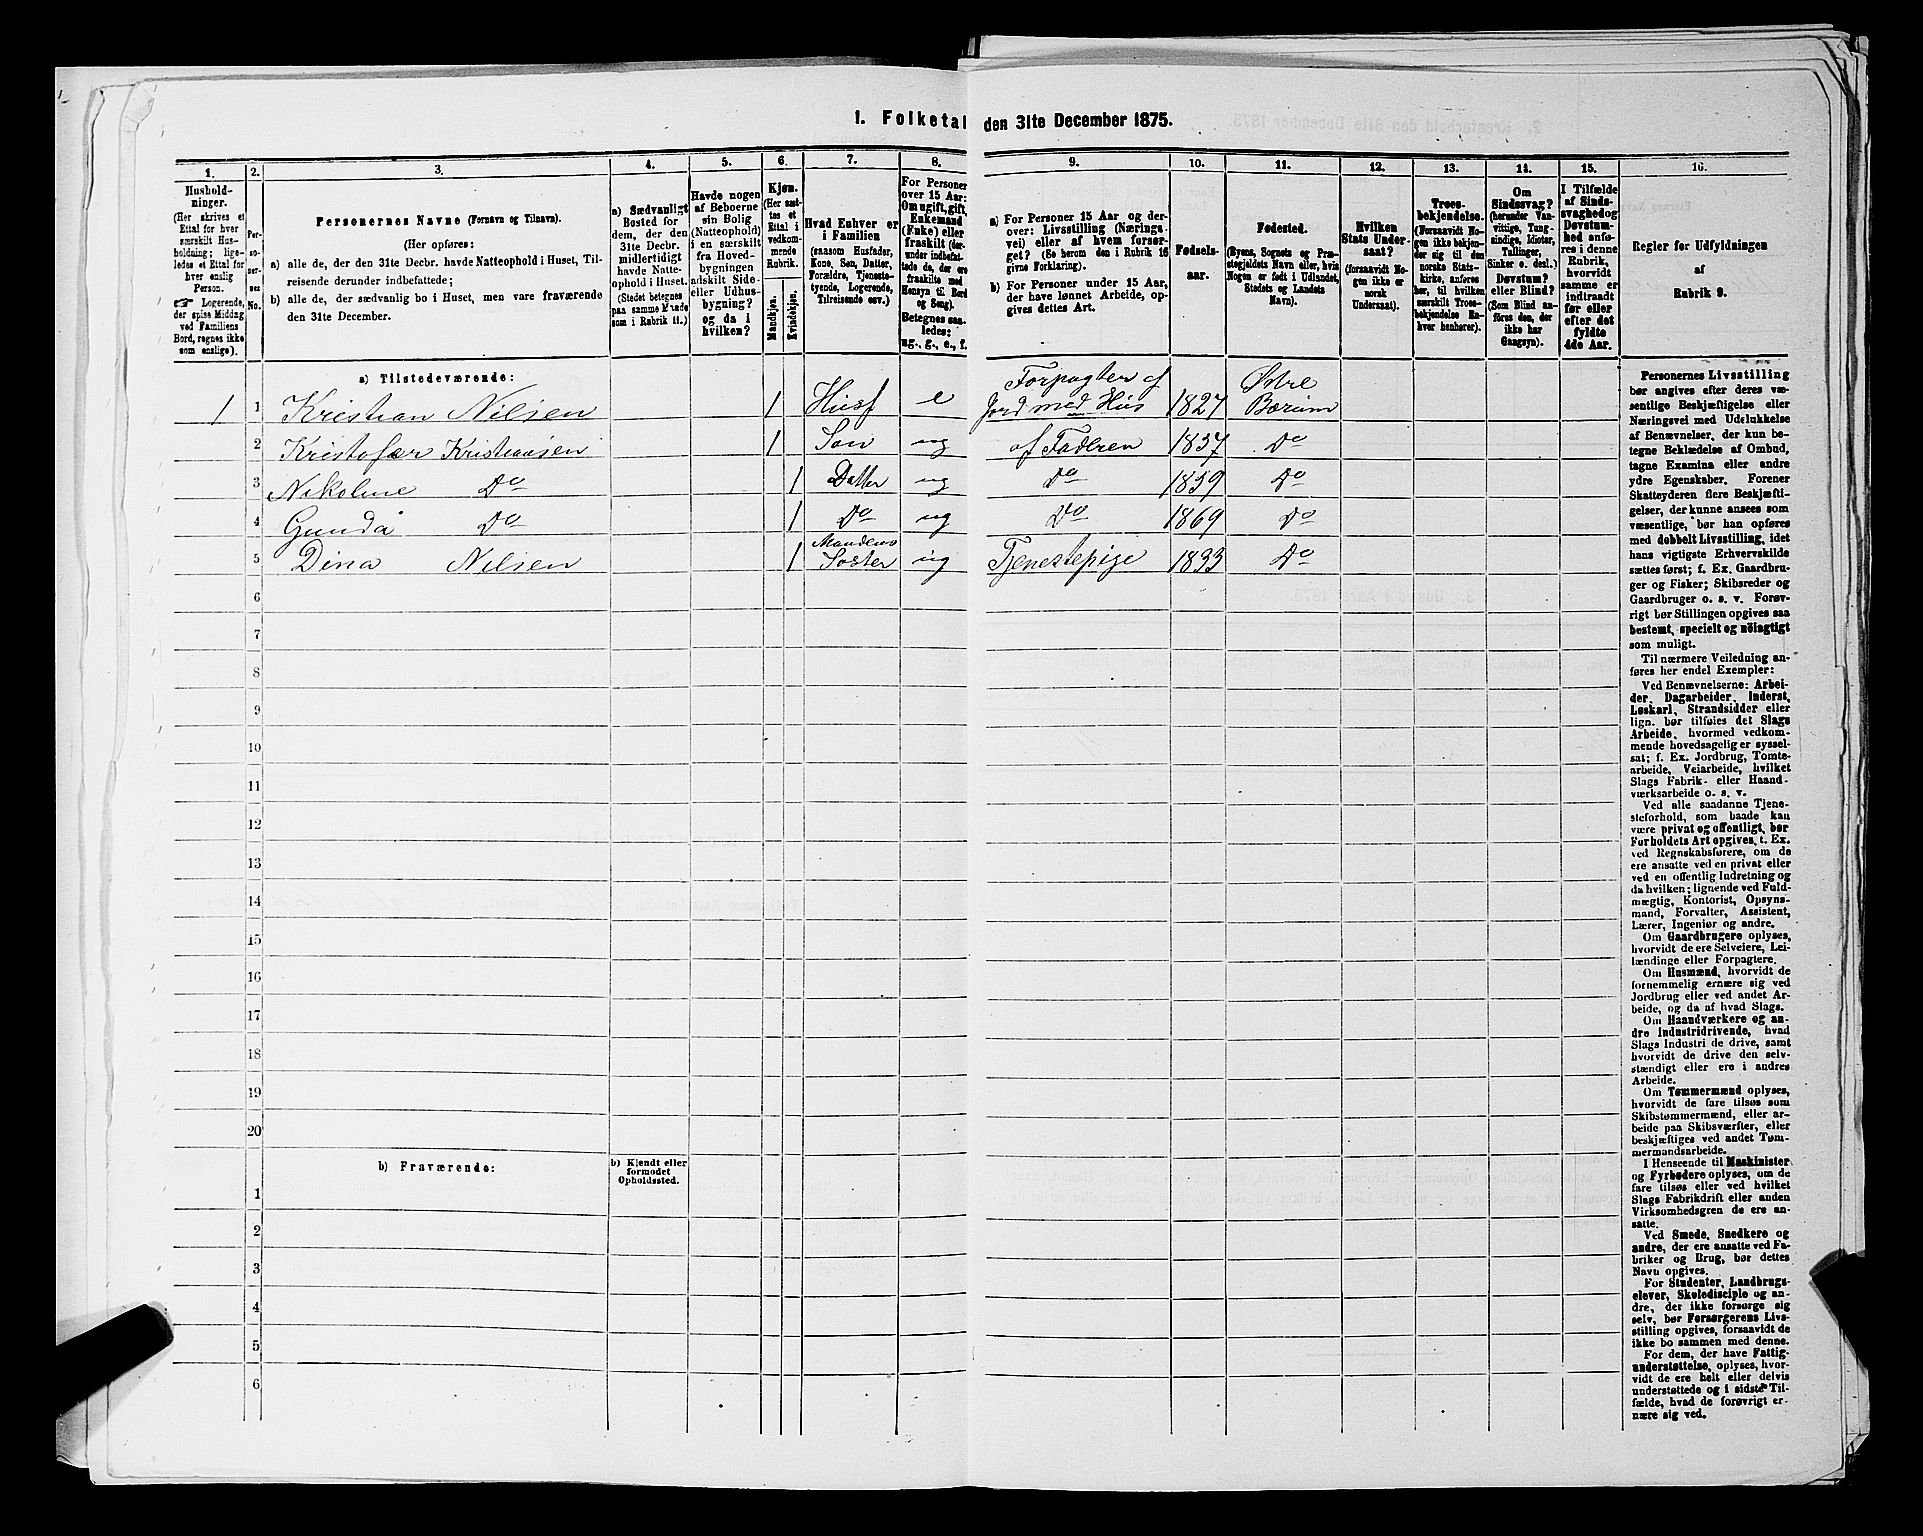 1. Folketal den 31te December 1875.
1.
2.
3.
4.
5.
6.
7.
8.
9.
10.
11.
12.
13.
14.
15.
16.
Hushold-
ninger.
(Her skrives et
Ettal for hver
særskilt Hus-
holdning; lige-
ledes et Ettal for
hver enslig
Person.
☞ Logerende,
der spise Middag
ved Familiens
Bord, regnes ikke
som enslige).
Per-
so-
ner-
nes
No.
Personernes Navne (Fornavn og Tilnavn).
(Her opføres:
a) alle de, der den 31te Decbr. havde Natteophold i Huset, Til-
reisende derunder indbefattede;
b) alle de, der sædvanlig bo i Huset, men vare fraværende
den 31te December.
a) Sædvanligt
Bosted for
dem, der den
31te Decbr.
midlertidigt
havde Natte-
ophold i Huset.
(Stedet betegnes
paa samme Maade
som i Rubrik 11.)
Havde nogen
af Beboerne
sin Bolig
(Natteophold)
i en særskilt
fra Hoved-
bygningen
adskilt Side-
eller Udhus-
bygning?
og da i
hvilken?
Kjøn.
(Her sæt-
tes et
Ettal i
vedkom-
mende
Rubrik.
Mandkjøn.
Kvindekjøn.
Hvad Enhver er
i Familien
(saasom Husfader,
Kone, Søn, Datter,
Forældre, Tjeneste-
tyende, Logerende,
Tilreisende osv.)
For Personer
over 15 Aar:
Om ugift, gift,
Enkemand
(Enke) eller
fraskilt (der-
under indbefat-
tede de, der ere
fraskilte med
Hensyn til Bord
og Seng).
Betegnes saa-
ledes:
ug., g., e., f.
a) For Personer 15 Aar og der-
over: Livsstilling (Nærings-
vei) eller af hvem forsør-
get? (Se herom den i Rubrik 16
givne Forklaring).
b) For Personer under 15 Aar,
der have lønnet Arbeide, op-
gives dettes Art.
Fødsels-
aar.
Fødested.
(Byens, Sognets og Præ-
stegjeldets Navn eller, hvis
Nogen er født i Udlandet,
Stedets og Landets
Navn).
Hvilken
Stats Under-
saat?
(forsaavidt No-
gen ikke er
norsk
Undersaat).
Troes-
bekjendelse.
(Forsaavidt No-
gen ikke bekjen-
der sig til den
norske Stats-
kirke, anføres
her, til hvilken
særskilt Troes-
bekjendelse En-
hver henhører).
Om
Sindssvag?
(herunder Van-
vittige, Tung-
sindige, Idioter,
Tullinger,
Sinker o. desl.)
Døvstum?
eller Blind?
(Som Blind an-
føres den, der
ikke har
Gangsyn).
I Tilfælde
af Sinds-
svaghed og
Døvstum-
hed anfø-
res i denne
Rubrik,
hvorvidt
samme er
indtraadt
før eller
efter det
fyldte
4de Aar.
Regler for Udfyldningen
af
Rubrik 9.
a) Tilstedeværende:
1 1 Kristian Nilsen 1 Husf e Forpagter af Jord med Hus 1827 Østre Bærum
2 Kristofær Kristiansen 1 Søn ug af Faderen 1857 Do
3 Nikoline Do 1 Datter ug Do 1859 Do
4 Gunda Do 1 Do ug Do 1869 Do
5 Dina Nilsen 1 Mandens Søster ug Tjenestepige 1833 Do
6
7
8
9
10
11
12
13
14
15
16
17
18
19
20
b) Fraværende:
b) Kjendt eller
formodet
Opholdssted.
1
2
3
4
5
6
Personernes Livsstilling
bør angives efter deres væ-
sentlige Beskjæftigelse eller
Næringsvei med Udelukkelse
af Benævnelser, der kun be-
tegne Beklædelse af Ombud,
tagne Examina eller andre
ydre Egenskaber. Forener
Skatteyderen flere Beskjæfti-
gelser, der kunne ansees som
væsentlige, bør han opføres
med dobbelt Livsstilling, idet
hans vigtigste Erhvervskilde
sættes først; f. Ex. Gaardbru-
ger og Fisker; Skibsreder og
Gaardbruger o. s. v. Forøv-
rigt bør Stillingen opgives saa
bestemt, specielt og nöiagtigt
som muligt.
Til nærmere Veiledning an-
føres her endel Exempler:
Ved Benævnelserne: Arbei-
der, Dagarbeider, Inderst,
Løskarl, Strandsidder eller
lign. bør tilføies det Slags
Arbeide, hvormed vedkom-
mende hovedsagelig er syssel-
sat; f. Ex. Jordbrug, Tomte-
arbeide, Veiarbeide, hvilket
Slags Fabrik- eller Haand-
værksarbeide o. s. v.
Ved alle saadanne Tjene-
steforhold, som baade kan
være privat og offentligt, bør
Forholdets Art opgives, t. Ex.
ved Regnskabsførere, om de
ere ansatte ved en privat eller
ved en offentlig Indretning og
da hvilken; lignende ved Fuld-
mægtig, Kontorist, Opsyns-
mand, Forvalter, Assistent,
Lærer, Ingeniør og andre.
Om Gaardbrugere oplyses,
hvorvidt de ere Selveiere, Lei-
lændinge eller Forpagtere.
Om Husmænd, hvorvidt de
fornemmelig ernære sig ved
Jordbrug eller ved andet Ar-
beide, og da af hvad Slags.
Om Haandværkere og an-
dre Industridrivende, hvad
Slags Industri de drive, samt
hvorvidt de drive den selv-
stændigt eller ere i andres
Arbeide.
Om Tømmermænd oplyses,
hvorvidt de fare tilsøs som
Skibstømmermænd, eller ar-
beide paa Skibsværfter, eller
beskjæftiges ved andet Tøm-
mermandsarbeide.
I Henseende til Maskinister
og Fyrbødere oplyses, om de
fare tilsøs eller ved hvilket
Slags Fabrikdrift eller anden
Virksomhedsgren de ere an-
satte.
Ved Smede, Snedkere og
andre, der ere ansatte ved Fa-
briker og Brug, bør dettes
Navn opgives.
For Studenter, Landbrugs-
elever, Skoledisciple og an-
dre, der ikke forsørge sig
selv, bør Forsørgerens Livs-
stilling opgives, forsaavidt de
ikke bo sammen med denne.
For dem, der have Fattig-
understøttelse, oplyses, hvor-
vidt de ere helt eller delvis
understøttede og i sidste Til-
fælde, hvad de forøvrigt er-
nære sig ved.